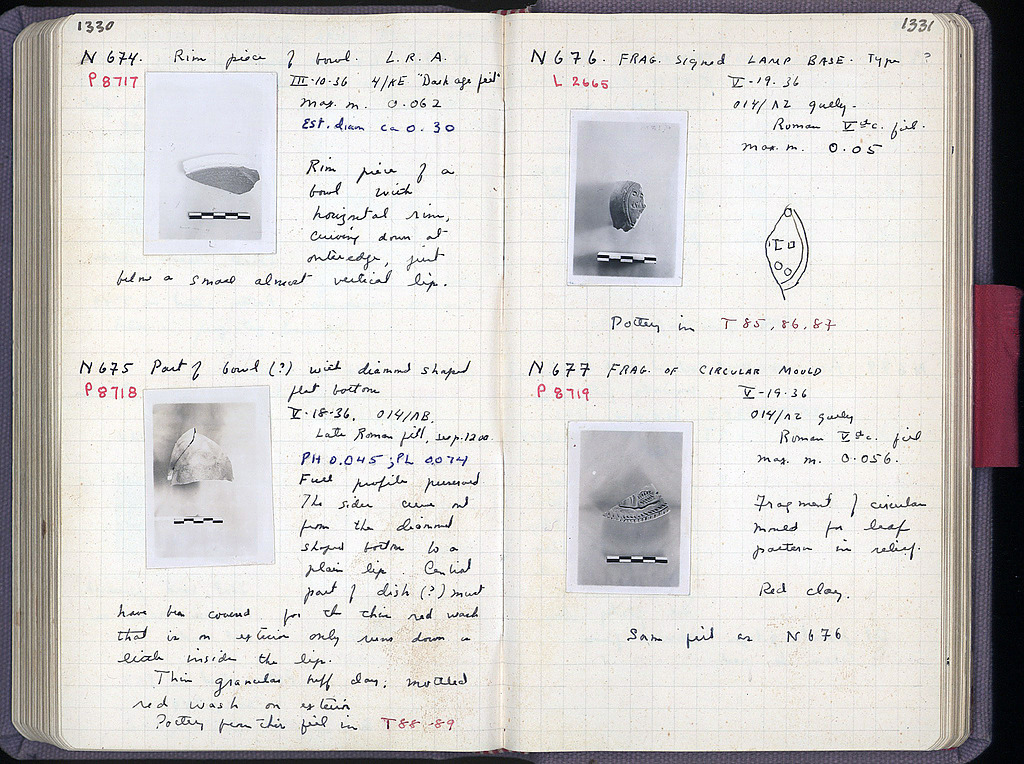 1330
N 674. Rim piece of bowl. L. R. A.
P 8717
III-10-36 4/KE "Dark age fill"
max. m. 0.062
Est. diam ca 0.30
Rim piece of a
bowl with
horizontal rim,
curving down at
outer edge, just
below a small almost vertical lip.
N 675 Part of bowl (?) with diamond shaped
flat bottom
P 8718
V-18-36, 014/ΛB
Late Roman fill, see p. 1200.
PH 0.045; PL 0.074
Full profile preserved
The sides curve out
from the diamond
shaped bottom to a
plain lip. Central
part of dish (?) must
have been covered for the thin red wash
that is on exterior only runs down a
little inside the lip.
Thin granular buff clay; mottled
red wash on exterior
Pottery from this fill in T 88-89
1331
N 676. FRAG. Signed LAMP BASE. Type ?
L 2665
V-19-36
014/ΛΖ gully.
Roman V th c. fill.
max. m. 0.05
Pottery in T 85, 86, 87
N 677 FRAG. OF CIRCULAR MOULD
P 8719
V-19-36
014/ΛΖ gully
Roman V th c. fill
max. m. 0.056.
Fragment of circular
mould for leaf
pattern in relief.
Red clay.
Same fill as N 676